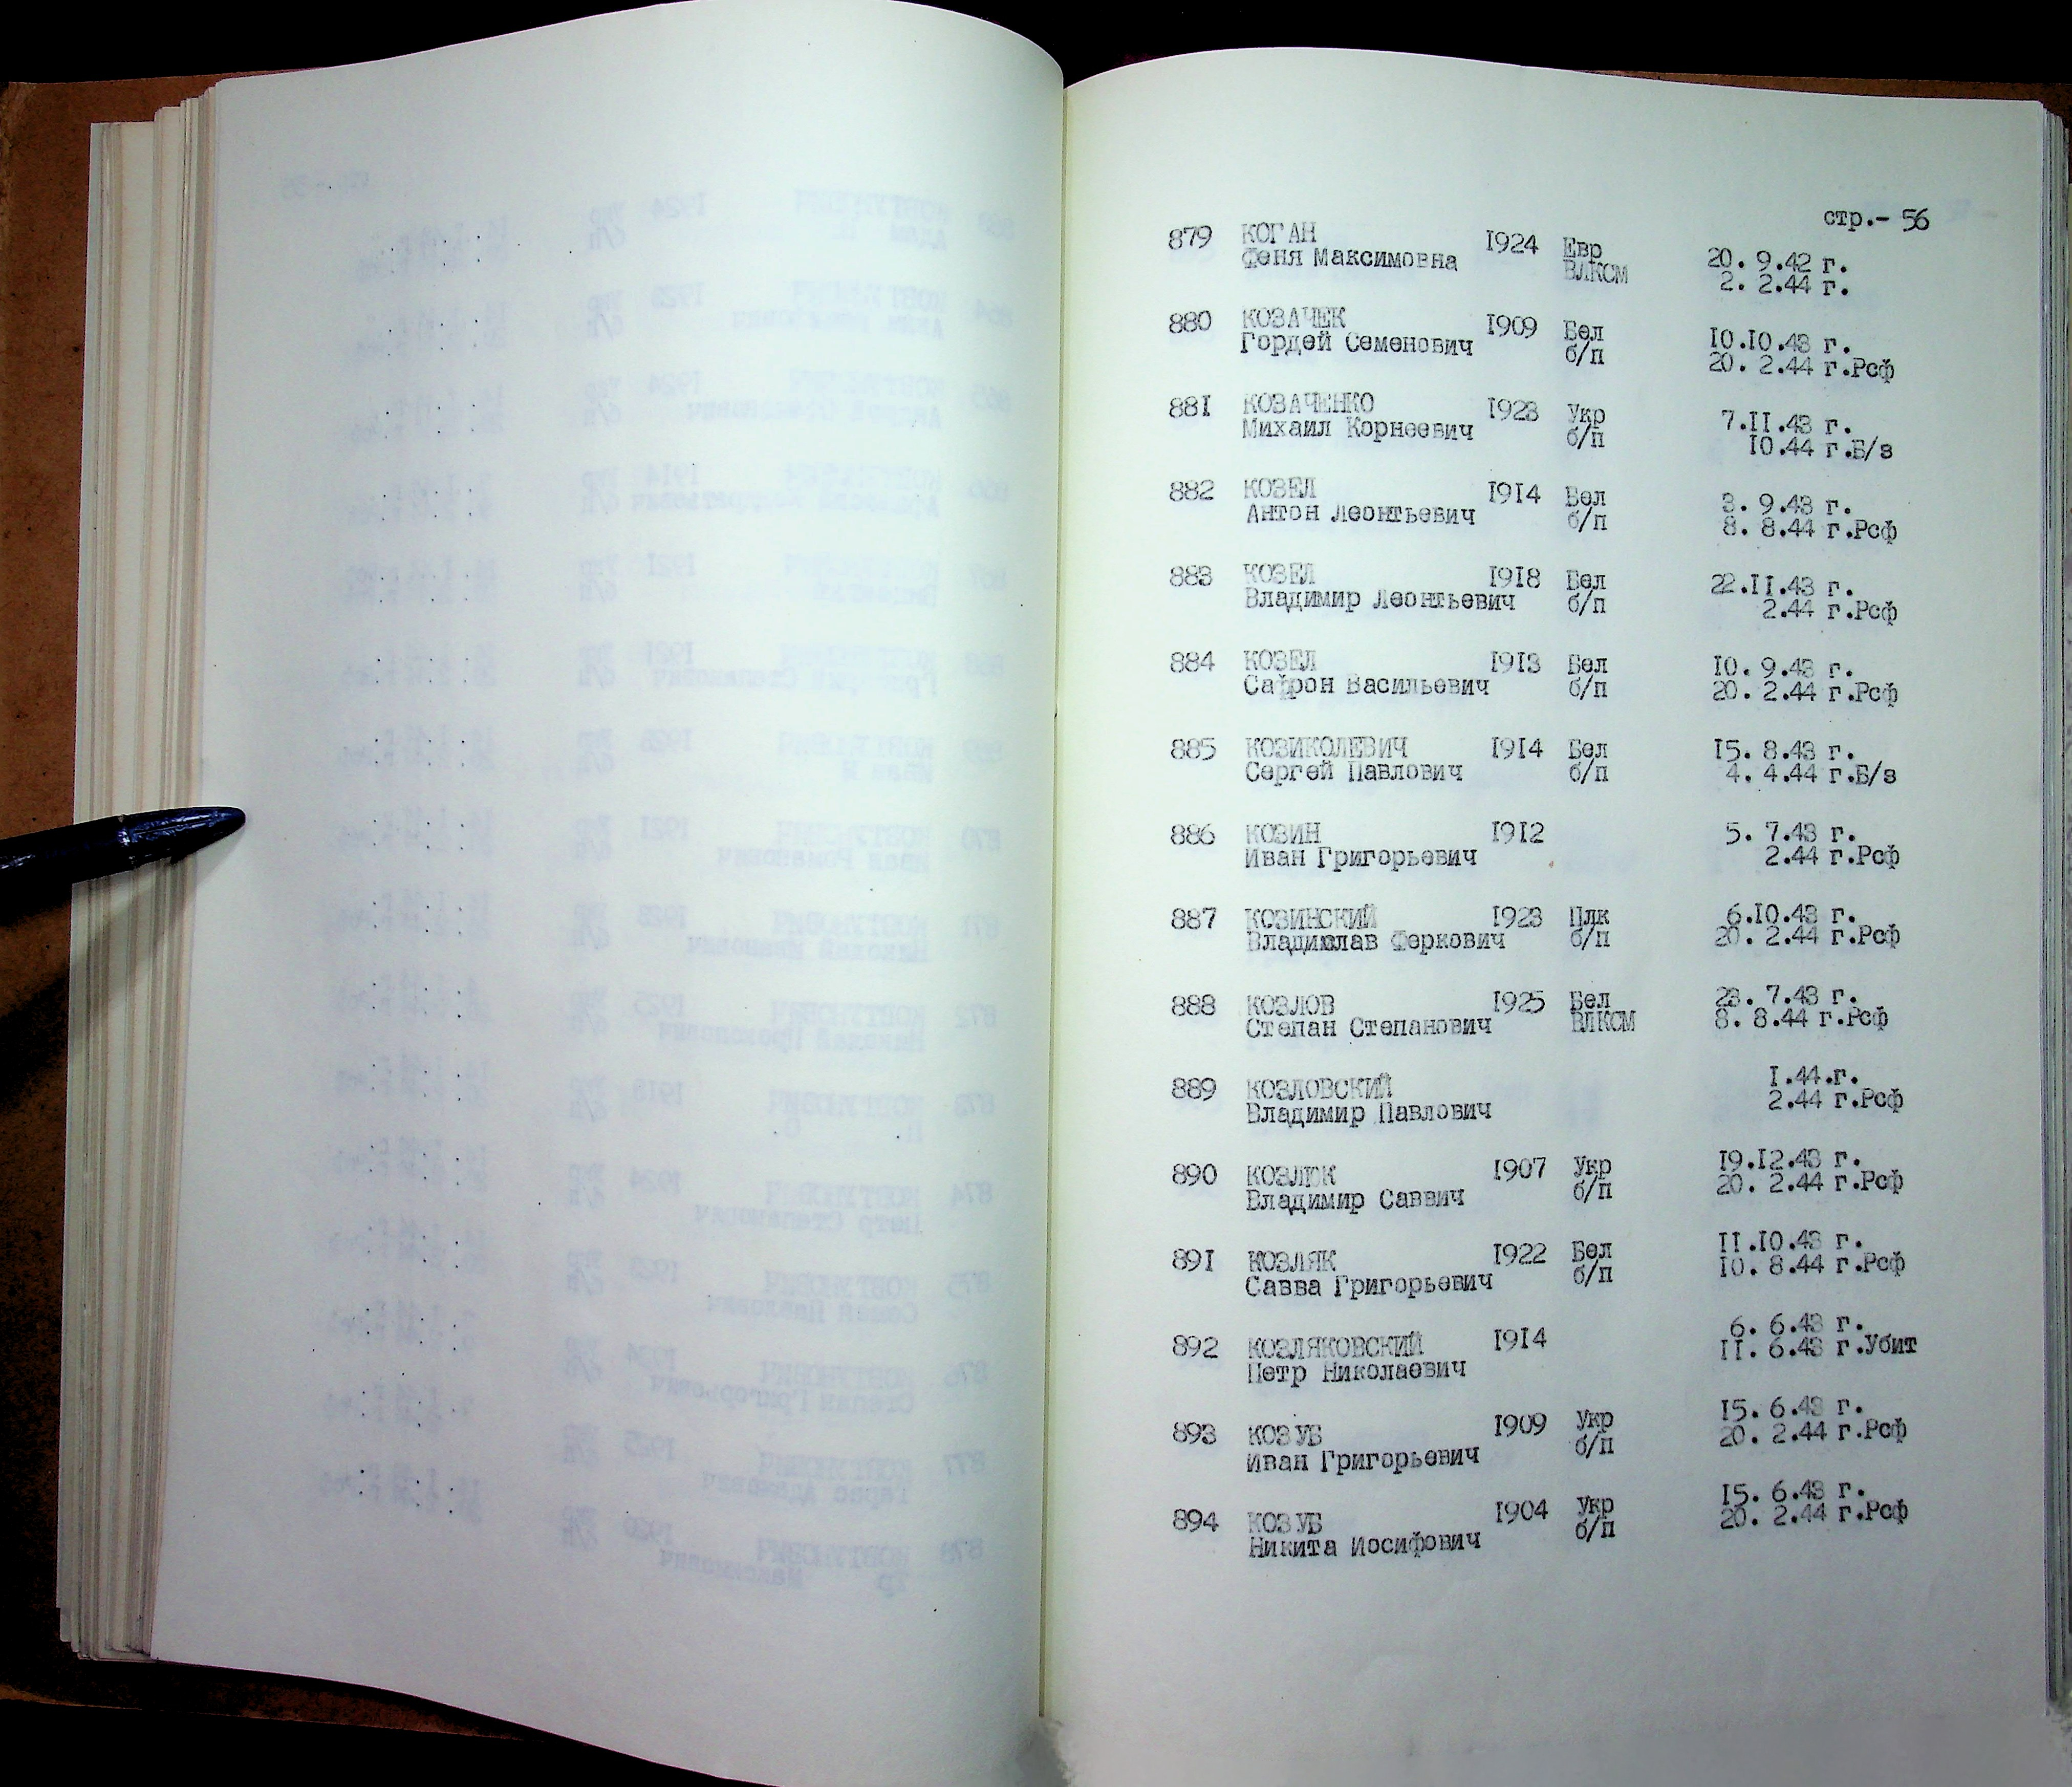 стр.- 56
879 КОГАН 1924 Евр 20. 9.42 г.
Феня Максимовна ВЛКСМ 2. 2.44 г.
880 КОЗАЧЕК 1909 Бел 10.10.43 г.
Гордей Семенович б/п 20. 2.44 г.Рсф
881 КОЗАЧЕНКО 1923 Укр 7.11.43 г.
Михаил Корнеевич б/п 10.44 г.Б/з
882 КОЗЕЛ 1914 Бел 3. 9.43 г.
Антон Леонтьевич б/п 8. 8.44 г.Рсф
883 КОЗЕЛ 1918 Бел 22.11.43 г.
Владимир Леонтьевич б/п 2.44 г.Рсф
884 КОЗЕЛ 1913 Бел 10. 9.43 г.
Сафрон Васильевич б/п 20. 2.44 г.Рсф
885 КОЗИКОЛЕВИЧ 1914 Бел 15. 8.43 г.
Сергей Павлович б/п 4. 4.44 г.Б/з
886 КОЗИН 1912 5. 7.43 г.
Иван Григорьевич 2.44 г.Рсф
887 КОЗИНСКИЙ 1923 Плк 6.10.43 г.
Владислав Феркович б/п 20. 2.44 г.Рсф
888 КОЗЛОВ 1925 Бел 23. 7.43 г.
Степан Степанович ВЛКСМ 8. 8.44 г.Рсф
889 КОЗЛОВСКИЙ 1.44.г.
Владимир Павлович 2.44 г.Рсф
890 КОЗЛЮК 1907 Укр 19.12.43 г.
Владимир Саввич б/п 20. 2.44 г.Рсф
891 КОЗЛЯК 1922 Бел 11.10.43 г.
Савва Григорьевич б/п 10. 8.44 г.Рсф
892 КОЗЛЯКОВСКИЙ 1914 6. 6.43 г.
Петр Николаевич 11. 6.43 г.Убит
893 КОЗУБ 1909 Укр 15. 6.43 г.
Иван Григорьевич б/п 20. 2.44 г.Рсф
894 КОЗУБ 1904 Укр 15. 6.43 г.
Никита Иосифович б/п 20. 2.44 г.Рсф